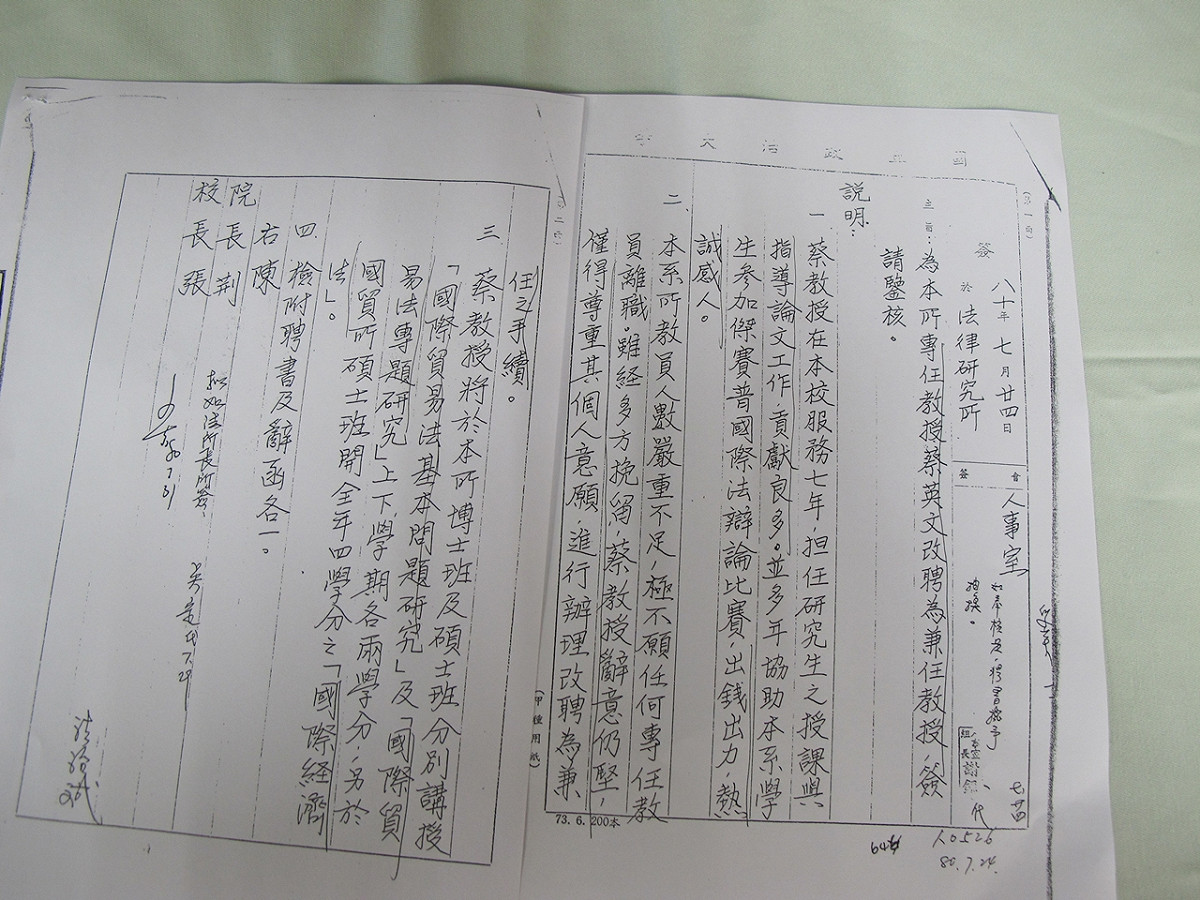 國立政治大學
(第一面)
簽
八十年七月廿四日
於
法律研究所
會
簽
人事室
如奉核定,
抽換。
組長
代
人0526
80.7.24.
主旨:為本所專任教授蔡英文改聘為兼任教授,簽
請鑒核。
說明:
一、蔡教授在本校服務七年,担任研究生之授課與
指導論文工作,貢獻良多。並多年協助本系學
生參加傑賽普國際法辯論比賽,出錢出力,熱
誠感人。
二、本系所教員人數嚴重不足,極不願任何專任教
員離職。雖経多方挽留,蔡教授辭意仍堅,
僅得尊重其個人意願,進行辦理改聘為兼
73.6.200本
(甲種用紙)
第二面
任之手續。
三、蔡教授將於本所博士班及碩士班分別講授
「國際貿易法基本問題研究」及「國際貿
易法專題研究」上下學期各兩學分,另於
國貿所碩士班開全年四學分之「國際経濟
法」。
四、檢附聘書及辭函各一。
右陳
院長荆
校長張
擬如法所長所簽
7.29
7/31